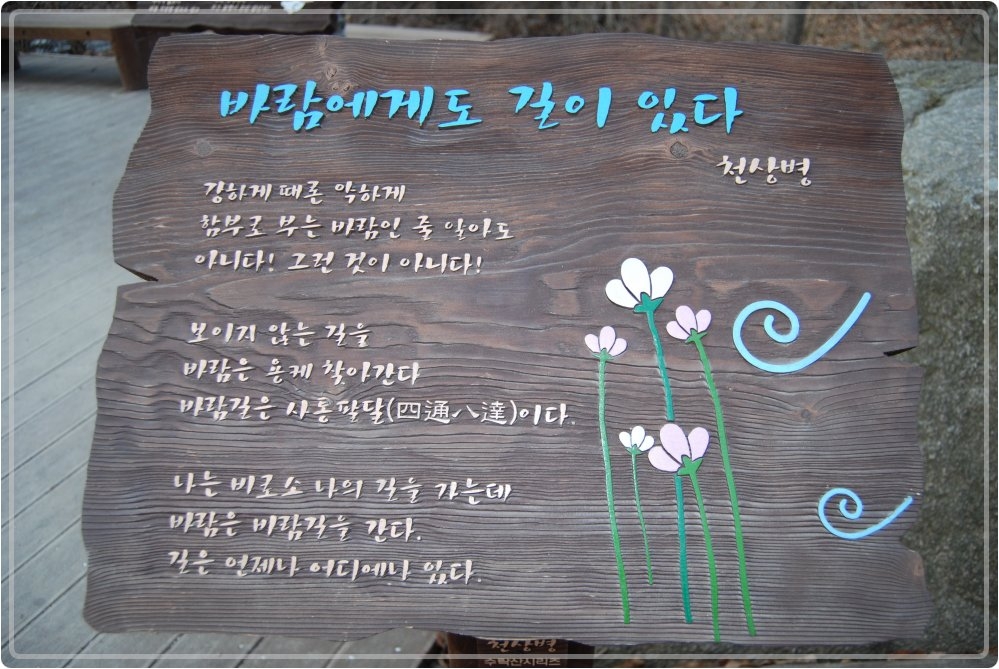 바람에게도 길이 있다
천상병
강하게 때론 약하게
함부로 부는 바람인 줄 알아도
아니다! 그런 것이 아니다!
보이지 않는 길을
바람은 용케 찾아간다
바람길은 사통팔달(四通八達)이다.
나는 비로소 나의 길을 가는데
바람은 바람길을 간다.
길은 언제나 어디에나 있다.
천상병
수락산시리즈